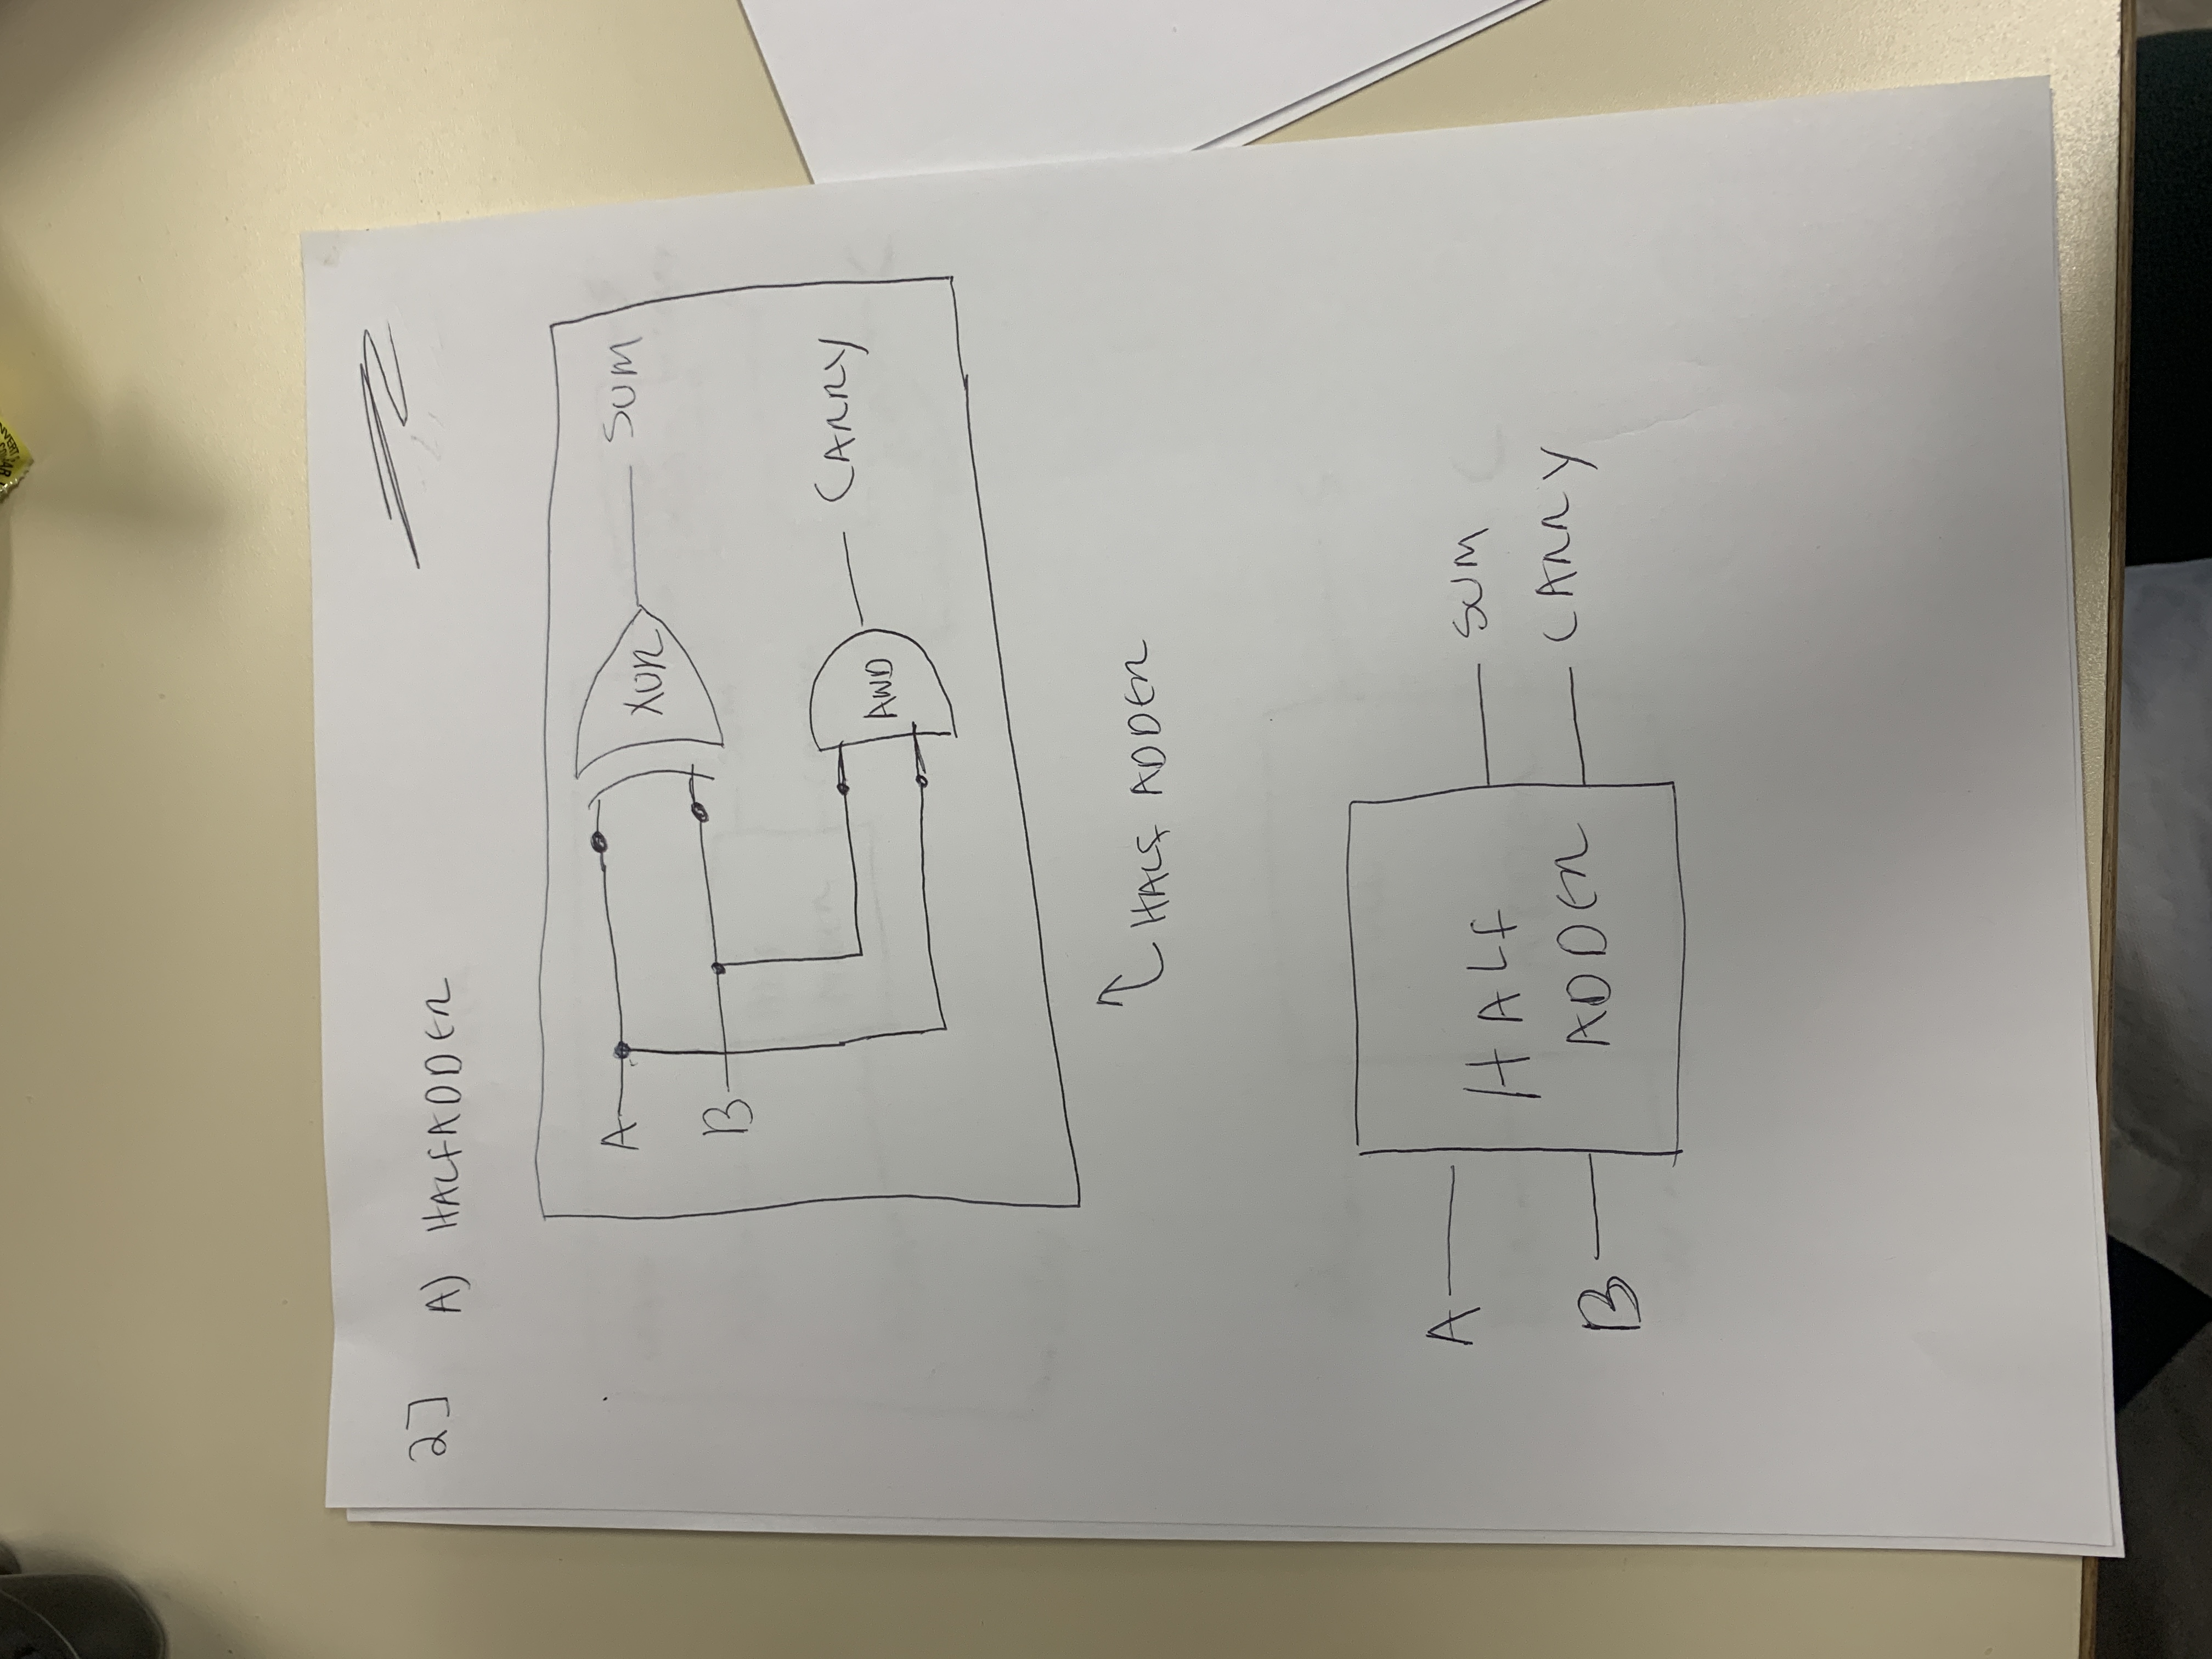 2] A) HALFADDER
A
XOR
SUM
B
AND
CARRY
HALF ADDER
A
HALF
SUM
ADDER
CARRY
B